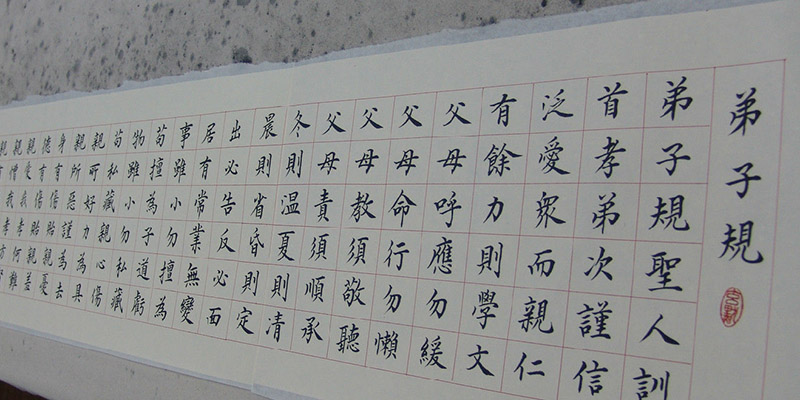 弟子規
弟子規聖人訓
首孝弟次謹信
泛愛衆而親仁
有餘力則學文
父母呼應勿緩
父母命行勿懶
父母教須敬聽
父母責須順承
冬則溫夏則清
晨則省昏則定
出必告反必面
居有常業無變
事雖小勿擅為
苟擅為子道虧
物雖小勿私藏
苟私藏親心傷
親所好力為具
親所惡謹為去
身有傷貽親憂
德有傷貽親羞
親愛我孝何難
親憎我孝方